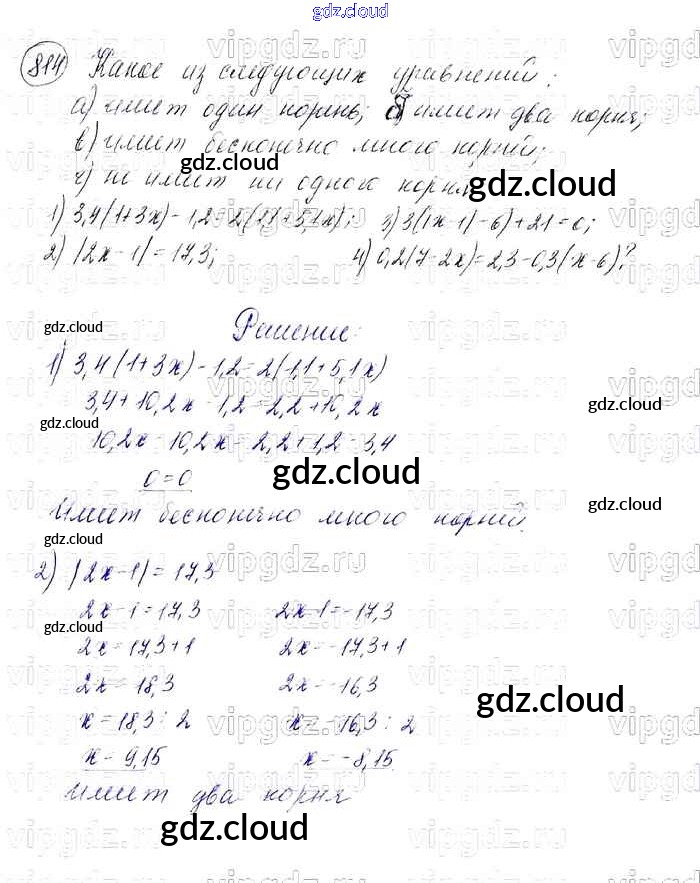 gdz.cloud
814 Какое из следующих уравнений:
а) имеет один корень; б) имеет два корня;
в) имеет бесконечно много корней;
г) не имеет ни одного корня
1) 3,4(1+3x)-1,2=2(1,1+5,1x); 3) 3(|x-1|-6)+21=0;
2) |2x-1|=17,3; 4) 0,2(7-2x)=2,3-0,3(x-6)?
Решение:
1) 3,4(1+3x)-1,2=2(1,1+5,1x)
3,4+10,2x-1,2=2,2+10,2x
10,2x-10,2x=2,2+1,2-3,4
0=0
Имеет бесконечно много корней.
2) |2x-1|=17,3
2x-1=17,3 2x-1=-17,3
2x=17,3+1 2x=-17,3+1
2x=18,3 2x=-16,3
x=18,3:2 x=-16,3:2
x=9,15 x=-8,15
Имеет два корня
gdz.cloud